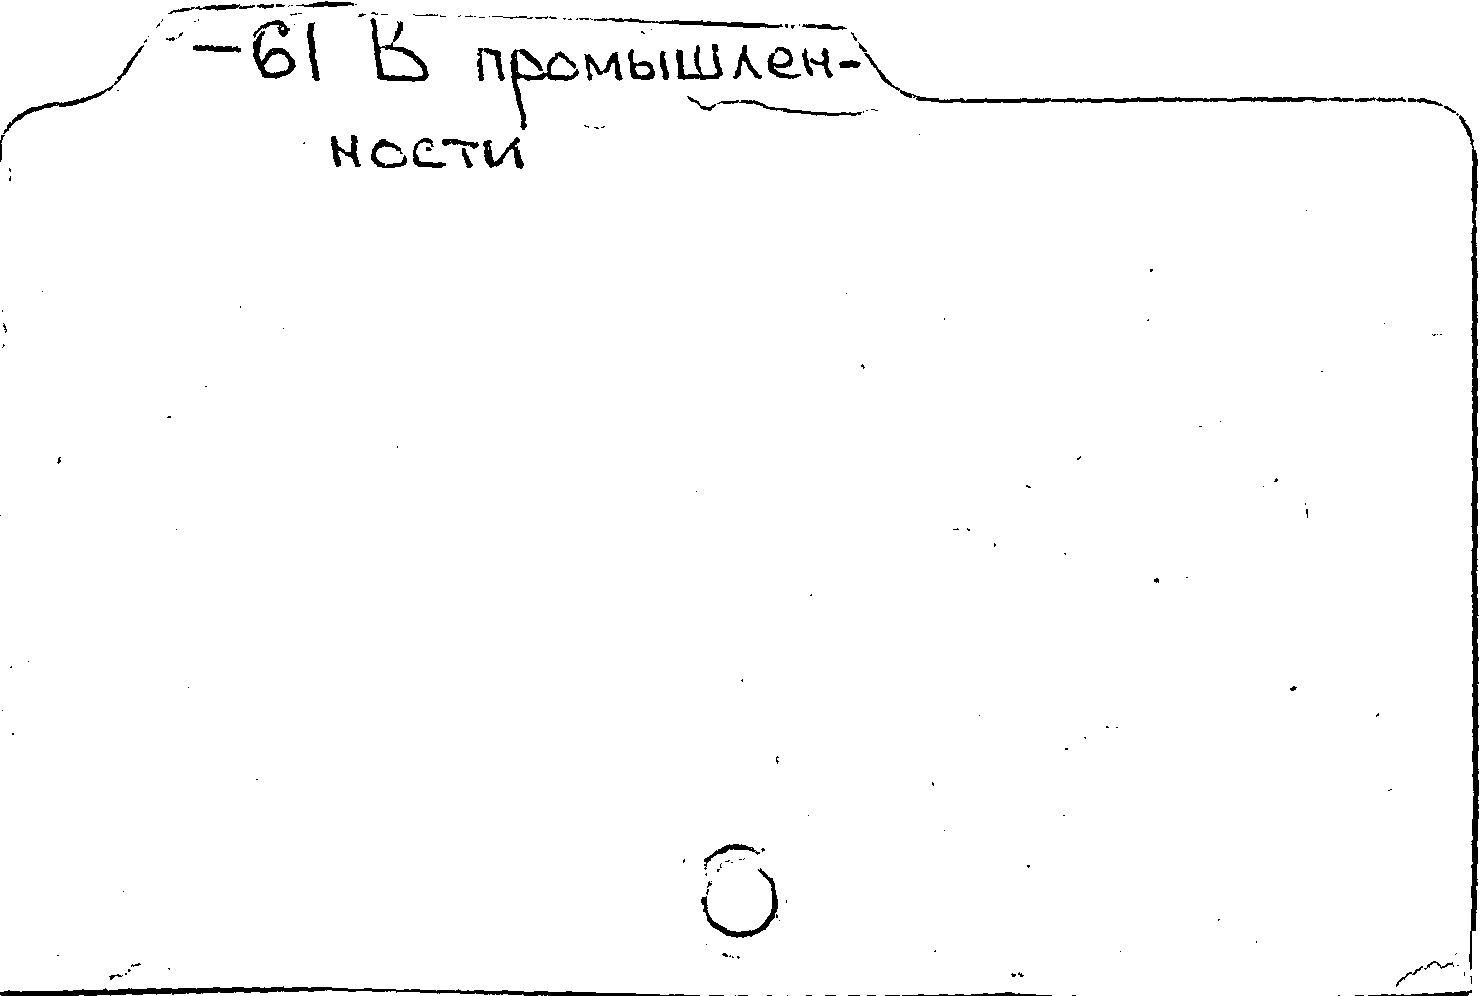 -61 В промышлен-
ности